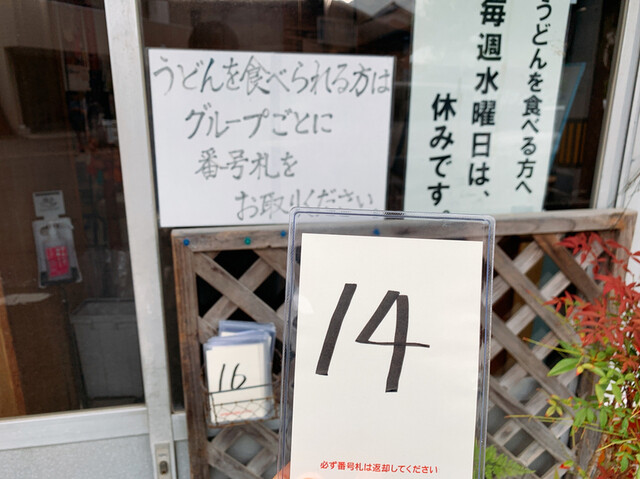 うどんを食べられる方は
グループごとに
番号札を
お取りください
うどんを食べる方へ
毎週水曜日は、
休みです。
14
必ず番号札は返却してください
16